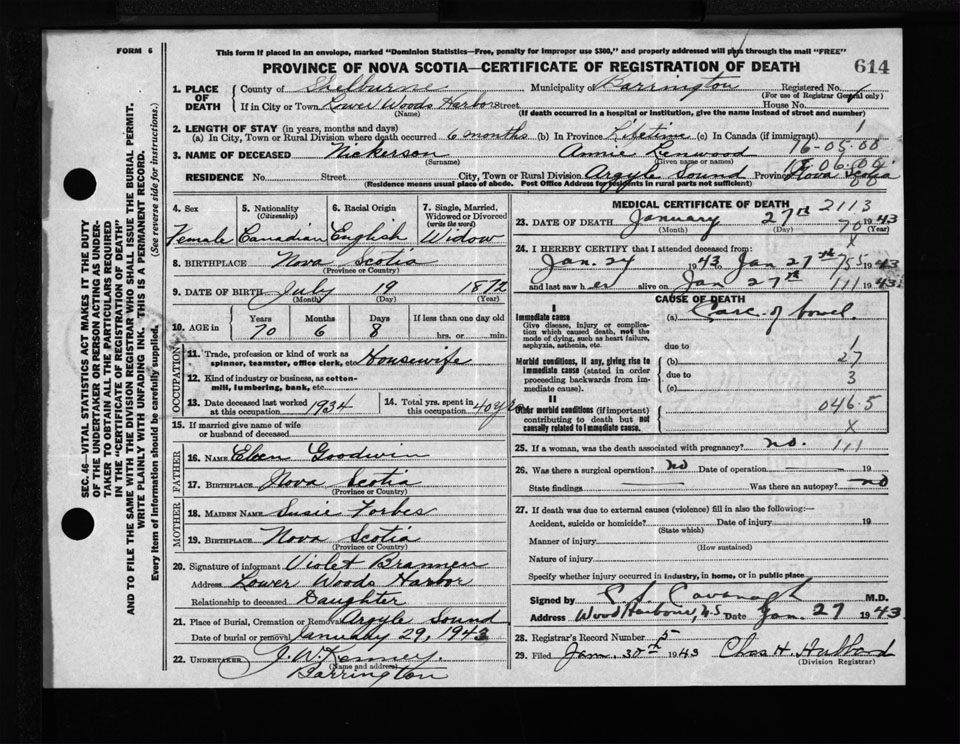 FORM 6
This form if placed in an envelope, marked "Dominion Statistics—Free, penalty for improper use $300," and properly addressed will pass through the mail "FREE"
PROVINCE OF NOVA SCOTIA—CERTIFICATE OF REGISTRATION OF DEATH
614
SEC. 46—VITAL STATISTICS ACT MAKES IT THE DUTY
OF THE UNDERTAKER OR PERSON ACTING AS UNDER-
TAKER TO OBTAIN ALL THE PARTICULARS REQUIRED
IN THE "CERTIFICATE OF REGISTRATION OF DEATH"
AND TO FILE THE SAME WITH THE DIVISION REGISTRAR WHO SHALL ISSUE THE BURIAL PERMIT.
WRITE PLAINLY WITH UNFADING INK. THIS IS A PERMANENT RECORD.
Every item of Information should be carefully supplied. (See reverse side for instructions.)
1. PLACE OF DEATH
County of Shelburne Municipality Barrington Registered No.
(For use of Registrar General only)
If in City or Town Lower Woods Harbor Street House No.
(Name) (If death occurred in a hospital or institution, give the name instead of street and number)
2. LENGTH OF STAY (in years, months and days)
(a) In City, Town or Rural Division where death occurred 6 months (b) In Province Lifetime (c) In Canada (if immigrant)
1
16-05-00
3. NAME OF DECEASED Nickerson Annie Linwood
(Surname) (Given name or names)
RESIDENCE No. Street City, Town or Rural Division Argyle Sound Province Nova Scotia
(Residence means usual place of abode. Post Office Address for residents in rural parts not sufficient)
4. Sex
Female
5. Nationality
(Citizenship)
Canadian
6. Racial Origin
English
7. Single, Married,
Widowed or Divorced
(write the word)
Widow
8. BIRTHPLACE Nova Scotia
(Province or Country)
9. DATE OF BIRTH July 19 1872
(Month) (Day) (Year)
10. AGE in
Years Months Days If less than one day old
70 6 8 hrs. or min.
OCCUPATION
11. Trade, profession or kind of work as
spinner, teamster, office clerk, etc. Housewife
12. Kind of industry or business, as cotton-
mill, lumbering, bank, etc.
13. Date deceased last worked
at this occupation 1934
14. Total yrs. spent in
this occupation 40 yrs
15. If married give name of wife
or husband of deceased
FATHER
16. Name Eben Goodwin
17. BIRTHPLACE Nova Scotia
(Province or Country)
MOTHER
18. MAIDEN NAME Susie Forbes
19. BIRTHPLACE Nova Scotia
(Province or Country)
20. Signature of informant Violet Brannen
Address Lower Woods Harbor
Relationship to deceased Daughter
21. Place of Burial, Cremation or Removal Argyle Sound
Date of burial or removal January 29, 1943
22. UNDERTAKER J. W. Kenney.
(Name and address)
Barrington
MEDICAL CERTIFICATE OF DEATH
2113
23. DATE OF DEATH January 27th 1943
(Month) (Day) (Year)
70
X
24. I HEREBY CERTIFY that I attended deceased from:
Jan. 24 1943 to Jan 27th 1943
155
and last saw her alive on Jan 27th 1943
111
CAUSE OF DEATH
I
Immediate cause
Give disease, injury or complica-
tion which caused death, not the
mode of dying, such as heart failure,
asphyxia, asthenia, etc.
(a) Carc. of bowel.
due to 1
Morbid conditions, if any, giving rise to
immediate cause (stated in order
proceeding backwards from im-
mediate cause).
(b) 27
due to 3
(c)
II
Other morbid conditions (if important)
contributing to death but not
causally related to immediate cause.
046.5
X
25. If a woman, was the death associated with pregnancy? no.
111
26. Was there a surgical operation? no Date of operation 19
State findings Was there an autopsy? no
27. If death was due to external causes (violence) fill in also the following:—
Accident, suicide or homicide? Date of injury 19
(State which)
Manner of injury
(How sustained)
Nature of injury
Specify whether injury occurred in industry, in home, or in public place
Signed by Cavanagh M.D.
Address Wood Harbour, N.S Date Jan. 27 1943
28. Registrar's Record Number 5
29. Filed Jan. 30th 1943 Chas H. Hubbard
(Division Registrar)